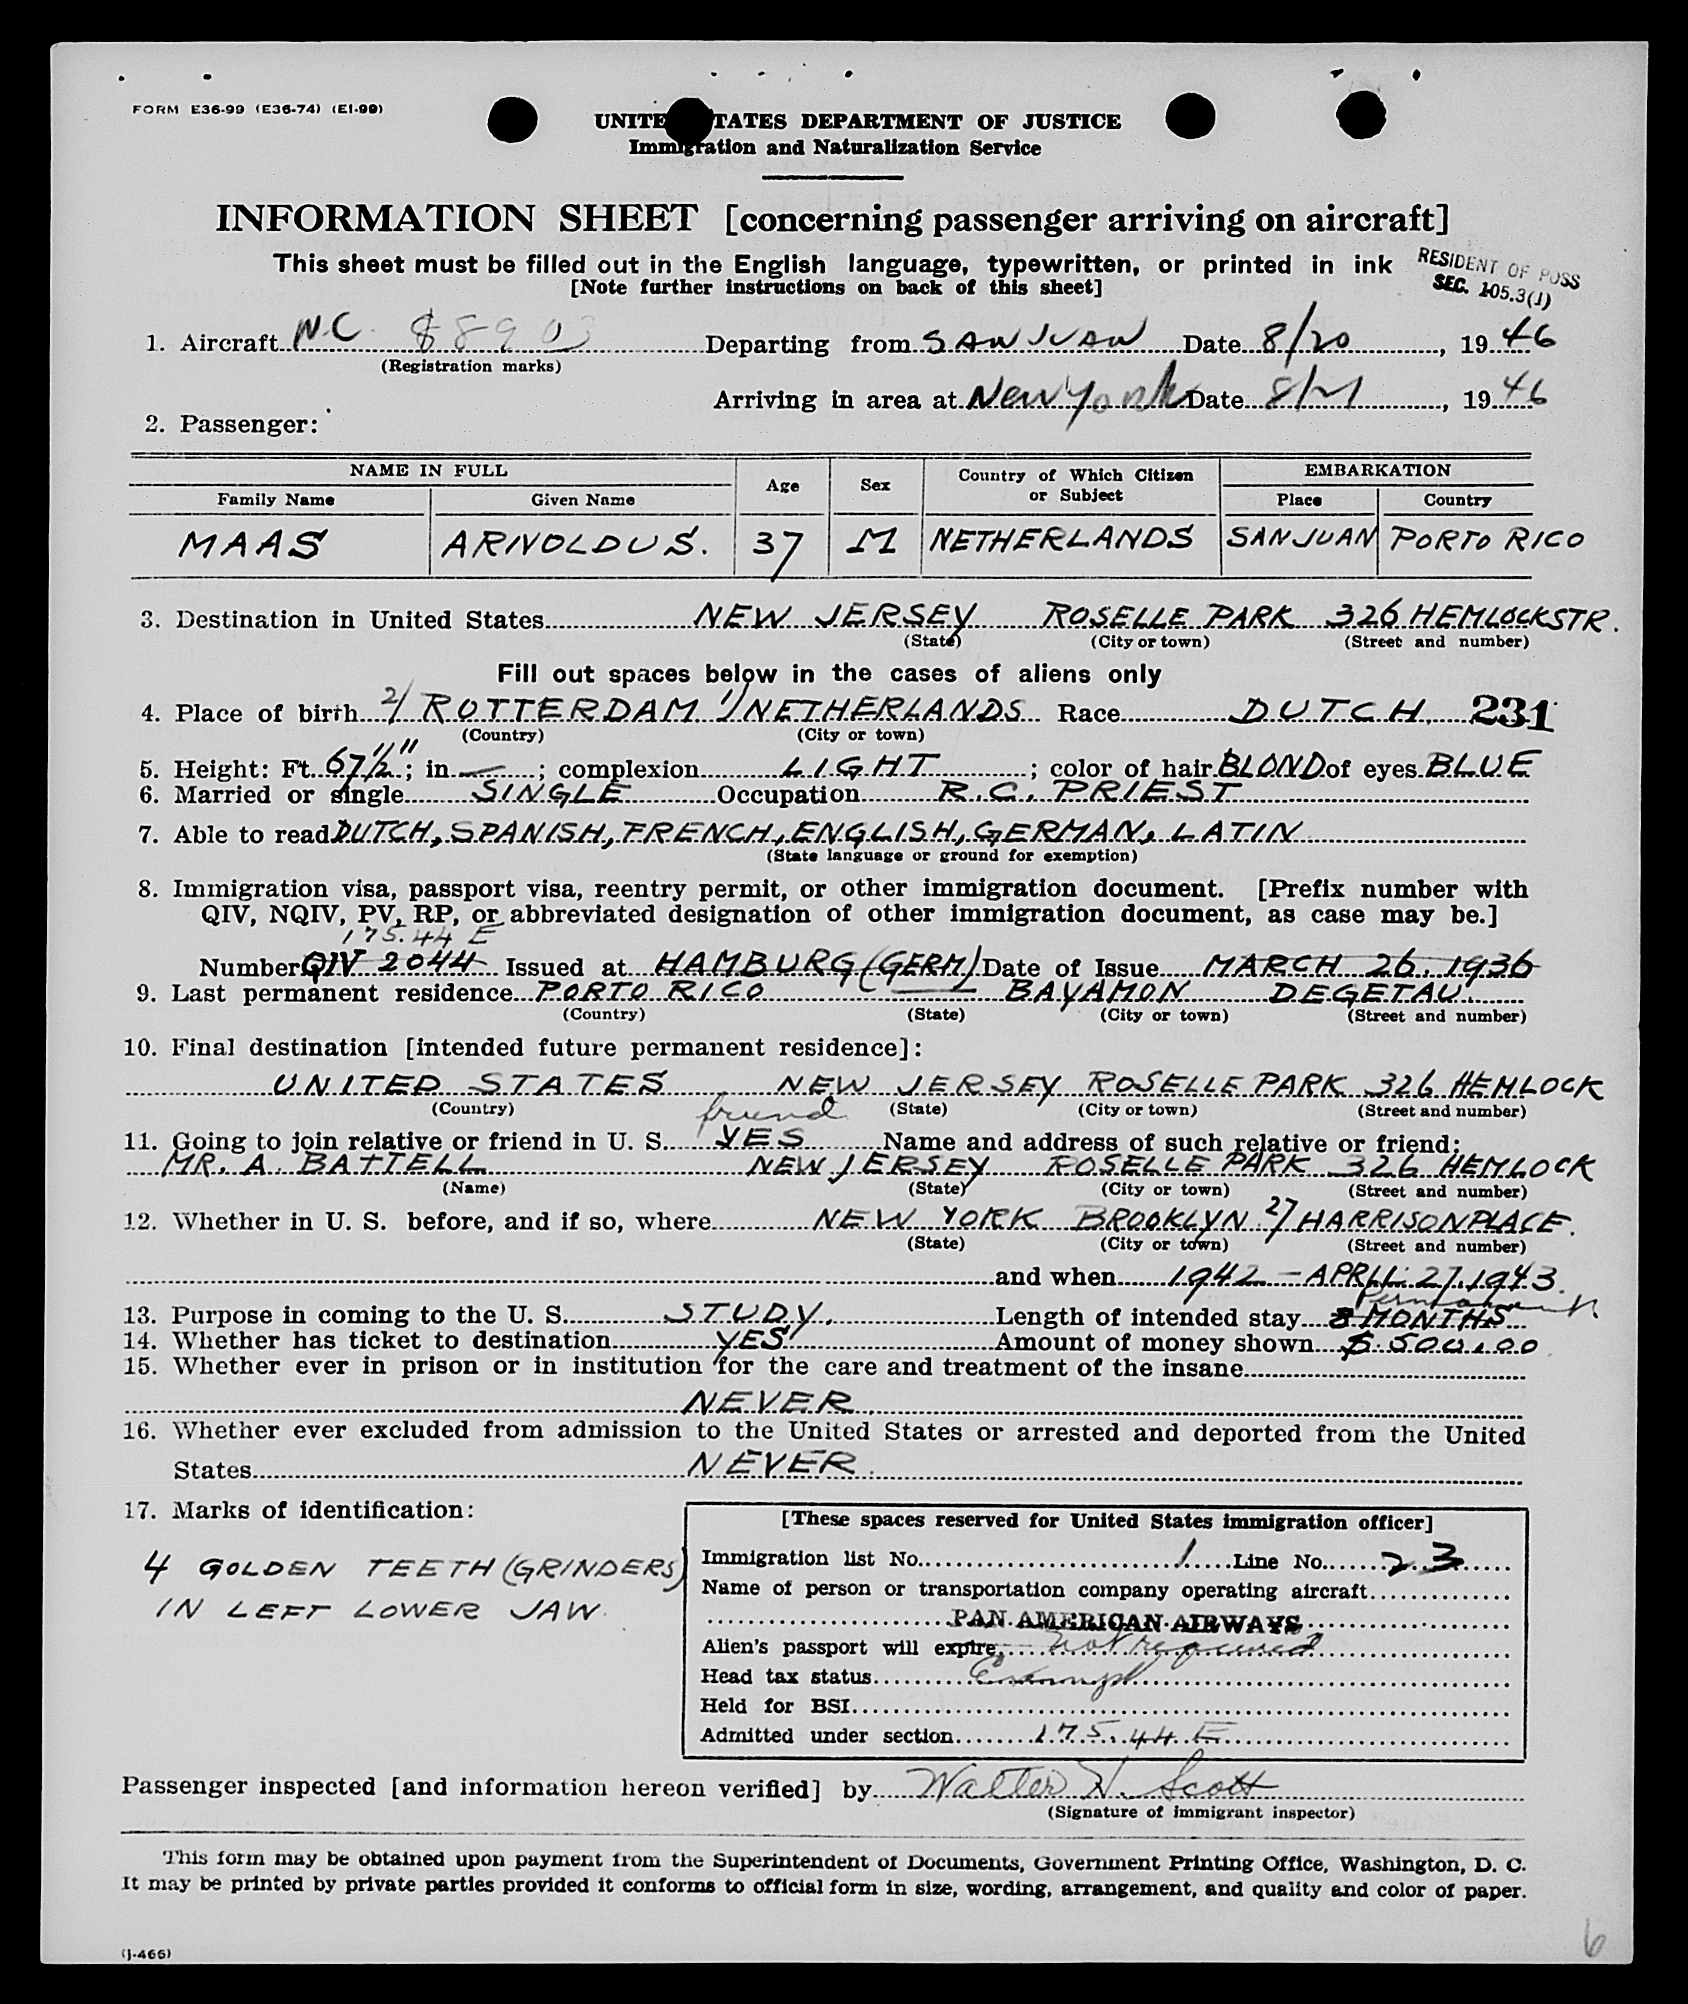 FORM E36-99 (E36-74) (E1-99)
UNITE TATES DEPARTMENT OF JUSTICE
Immigration and Naturalization Service
INFORMATION SHEET [concerning passenger arriving on aircraft]
This sheet must be filled out in the English language, typewritten, or printed in ink
[Note further instructions on back of this sheet]
RESIDENT OF POSS
SEC. 105.3(J)
1. Aircraft N.C. 88903 Departing from SAN JUAN Date 8/20, 1946
(Registration marks)
Arriving in area at New York Date 8/21, 1946
2. Passenger:
NAME IN FULL Age Sex Country of Which Citizen or Subject EMBARKATION
Family Name Given Name Place Country
MAAS ARNOLDUS. 37 M NETHERLANDS SAN JUAN PORTO RICO
3. Destination in United States NEW JERSEY ROSELLE PARK 326 HEMLOCK STR.
(State) (City or town) (Street and number)
Fill out spaces below in the cases of aliens only
4. Place of birth 2/ ROTTERDAM 1/ NETHERLANDS Race DUTCH. 231
(Country) (City or town)
5. Height: Ft. 67 1/2"; in. —; complexion LIGHT; color of hair BLOND of eyes BLUE
6. Married or single SINGLE Occupation R.C. PRIEST
7. Able to read DUTCH, SPANISH, FRENCH, ENGLISH, GERMAN, LATIN
(State language or ground for exemption)
8. Immigration visa, passport visa, reentry permit, or other immigration document. [Prefix number with
QIV, NQIV, PV, RP, or abbreviated designation of other immigration document, as case may be.]
175.44 E
Number QIV 2044 Issued at HAMBURG (GERM) Date of Issue MARCH 26, 1936
9. Last permanent residence PORTO RICO BAYAMON DEGETAU.
(Country) (State) (City or town) (Street and number)
10. Final destination [intended future permanent residence]:
UNITED STATES NEW JERSEY ROSELLE PARK 326 HEMLOCK
(Country) (State) (City or town) (Street and number)
friend
11. Going to join relative or friend in U. S. YES Name and address of such relative or friend:
MR. A. BATTELL NEW JERSEY ROSELLE PARK 326 HEMLOCK
(Name) (State) (City or town) (Street and number)
12. Whether in U. S. before, and if so, where NEW YORK BROOKLYN 27 HARRISON PLACE.
(State) (City or town) (Street and number)
and when 1942 – APRIL 27, 1943.
Permanent
13. Purpose in coming to the U. S. STUDY. Length of intended stay 8 MONTHS
14. Whether has ticket to destination YES Amount of money shown $.500.00
15. Whether ever in prison or in institution for the care and treatment of the insane
NEVER.
16. Whether ever excluded from admission to the United States or arrested and deported from the United
States NEVER.
17. Marks of identification:
4 GOLDEN TEETH (GRINDERS)
IN LEFT LOWER JAW.
[These spaces reserved for United States immigration officer]
Immigration list No. 1 Line No. 23
Name of person or transportation company operating aircraft
PAN AMERICAN AIRWAYS
Alien's passport will expire not required
Head tax status Exempt
Held for BSI
Admitted under section 175.44 E
Passenger inspected [and information hereon verified] by Walter H. Scott
(Signature of immigrant inspector)
This form may be obtained upon payment from the Superintendent of Documents, Government Printing Office, Washington, D. C.
It may be printed by private parties provided it conforms to official form in size, wording, arrangement, and quality and color of paper.
(J-466)
6